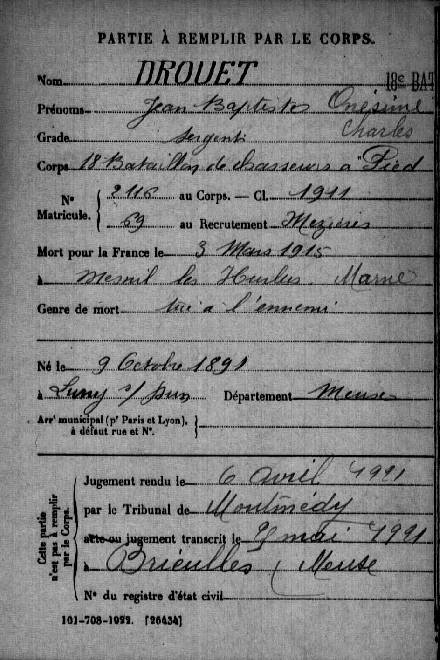 PARTIE À REMPLIR PAR LE CORPS.
Nom DROUET 18e BAT
Prénoms Jean Baptiste Onésime
Charles
Grade Sergent
Corps 18 Bataillon de chasseurs à Pied
N° Matricule. { 2116 au Corps. — Cl. 1911
69 au Recrutement Mezieres
Mort pour la France le 3 Mars 1915
à Mesnil les Hurlus. Marne
Genre de mort tué a l'ennemi
Né le 9 Octobre 1891
à s/ Département Meuse
Arrt municipal (pr Paris et Lyon), à défaut rue et N°. }
Cette partie n'est pas à remplir par le Corps.
Jugement rendu le 6 avril 1921
par le Tribunal de Montmédy
acte ou jugement transcrit le mai 1921
à Brieulles (Meuse
N° du registre d'état civil
101-708-1922. [26434]